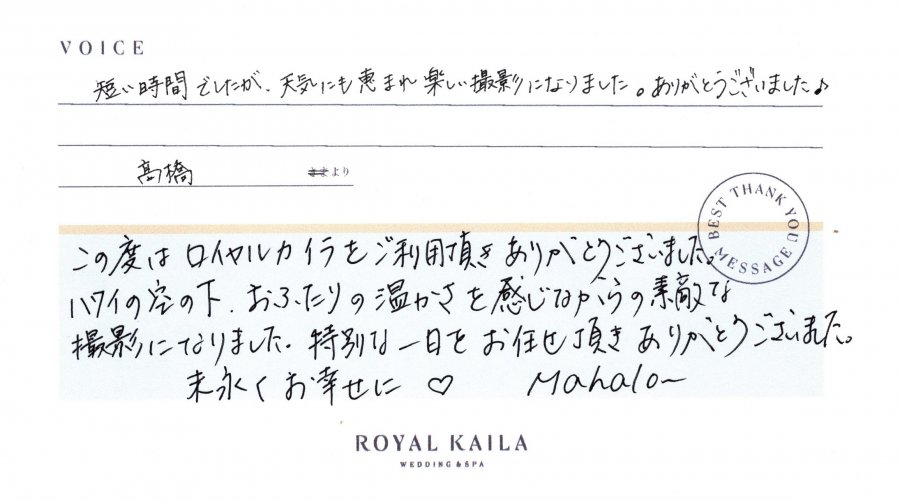 VOICE
短い時間でしたが、天気にも恵まれ楽しい撮影になりました。ありがとうございました♪
高橋 さまより
BEST THANK YOU MESSAGE
この度はロイヤルカイラをご利用頂きありがとうございました。
ハワイの空の下、おふたりの温かさを感じながらの素敵な
撮影になりました。特別な一日をお任せ頂きありがとうございました。
末永くお幸せに ♡ Mahalo~
ROYAL KAILA
WEDDING & SPA